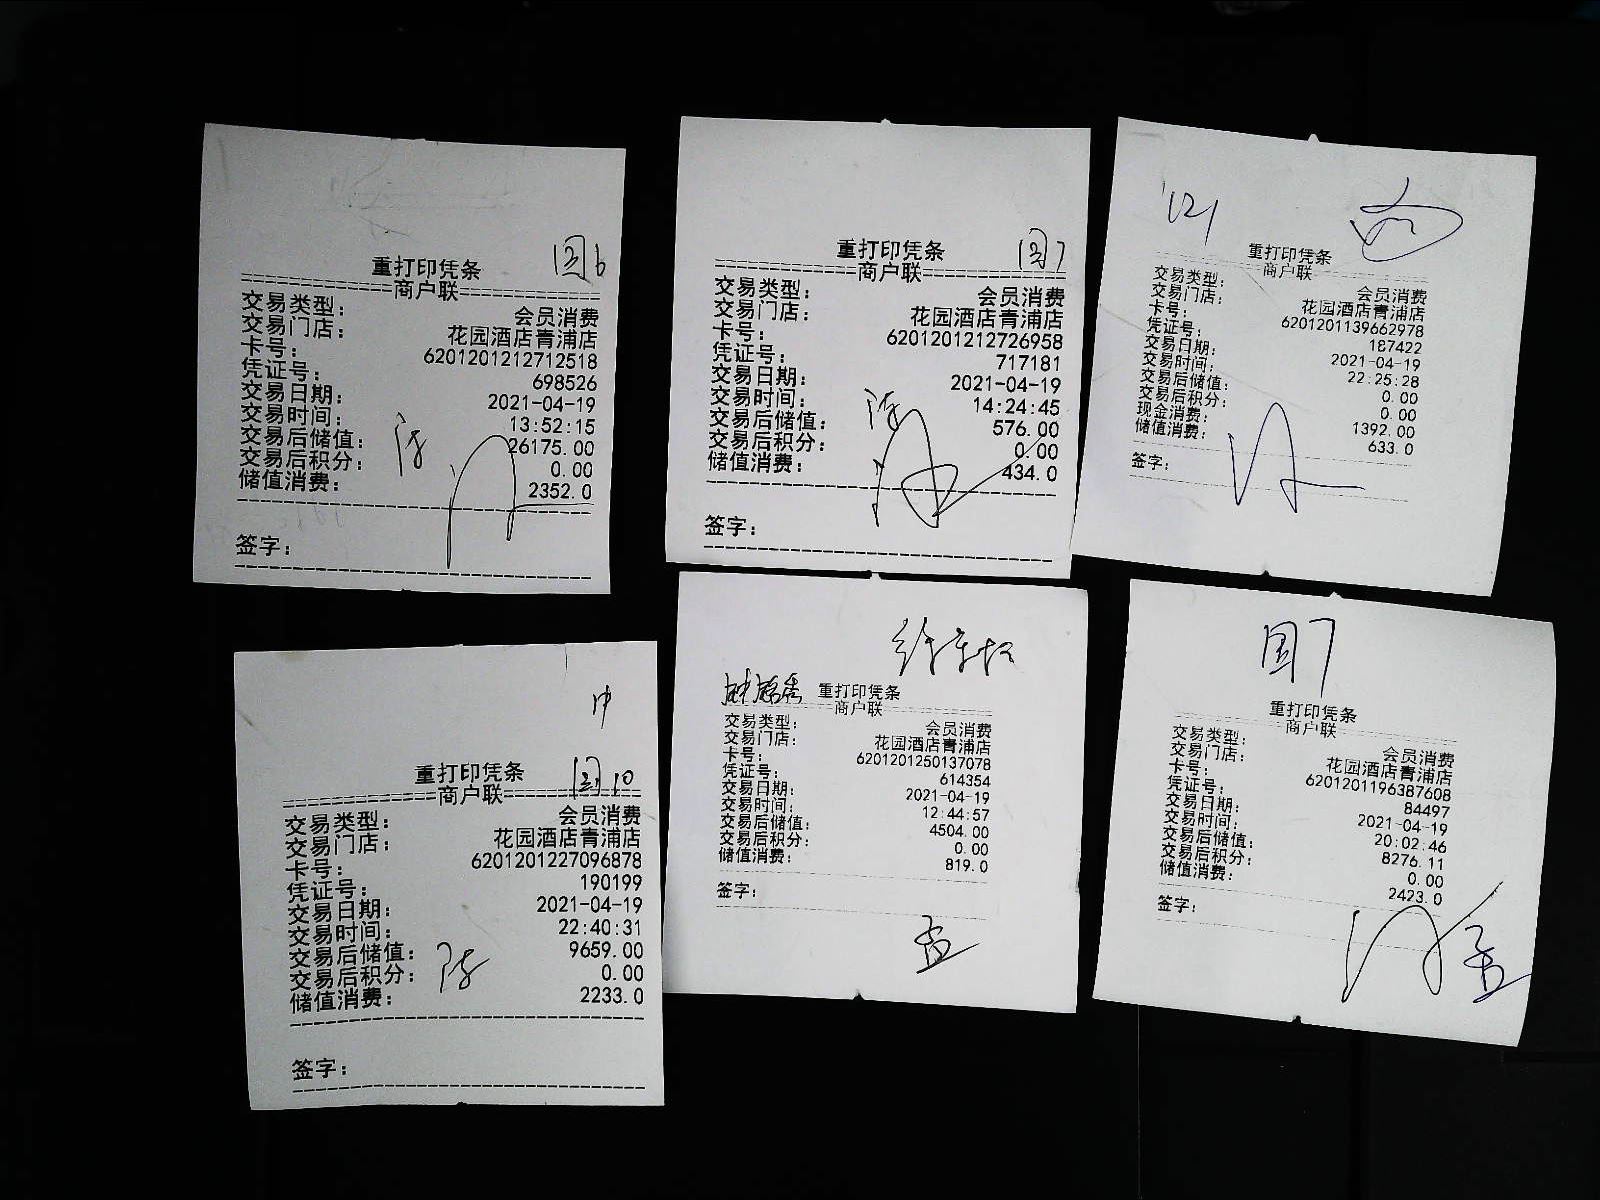 园6
重打印凭条
商户联
交易类型: 会员消费
交易门店: 花园酒店青浦店
卡号: 6201201212712518
凭证号: 698526
交易日期: 2021-04-19
交易时间: 13:52:15
交易后储值: 26175.00
交易后积分: 0.00
储值消费: 2352.0
签字:
园7
重打印凭条
商户联
交易类型: 会员消费
交易门店: 花园酒店青浦店
卡号: 6201201212726958
凭证号: 717181
交易日期: 2021-04-19
交易时间: 14:24:45
交易后储值: 576.00
交易后积分: 0.00
储值消费: 434.0
签字:
121
重打印凭条
商户联
交易类型: 会员消费
交易门店: 花园酒店青浦店
卡号: 6201201139662978
凭证号: 187422
交易日期: 2021-04-19
交易时间: 22:25:28
交易后储值: 0.00
交易后积分: 0.00
现金消费: 1392.00
储值消费: 633.0
签字:
园10
重打印凭条
商户联
交易类型: 会员消费
交易门店: 花园酒店青浦店
卡号: 6201201227096878
凭证号: 190199
交易日期: 2021-04-19
交易时间: 22:40:31
交易后储值: 9659.00
交易后积分: 0.00
储值消费: 2233.0
签字:
重打印凭条
商户联
交易类型: 会员消费
交易门店: 花园酒店青浦店
卡号: 6201201250137078
凭证号: 614354
交易日期: 2021-04-19
交易时间: 12:44:57
交易后储值: 4504.00
交易后积分: 0.00
储值消费: 819.0
签字:
园7
重打印凭条
商户联
交易类型: 会员消费
交易门店: 花园酒店青浦店
卡号: 6201201196387608
凭证号: 84497
交易日期: 2021-04-19
交易时间: 20:02:46
交易后储值: 8276.11
交易后积分: 0.00
储值消费: 2423.0
签字: